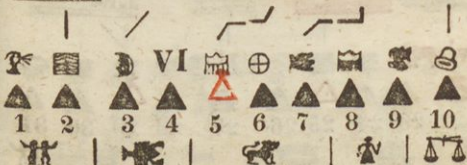 VI
1 2 3 4 5 6 7 8 9 10